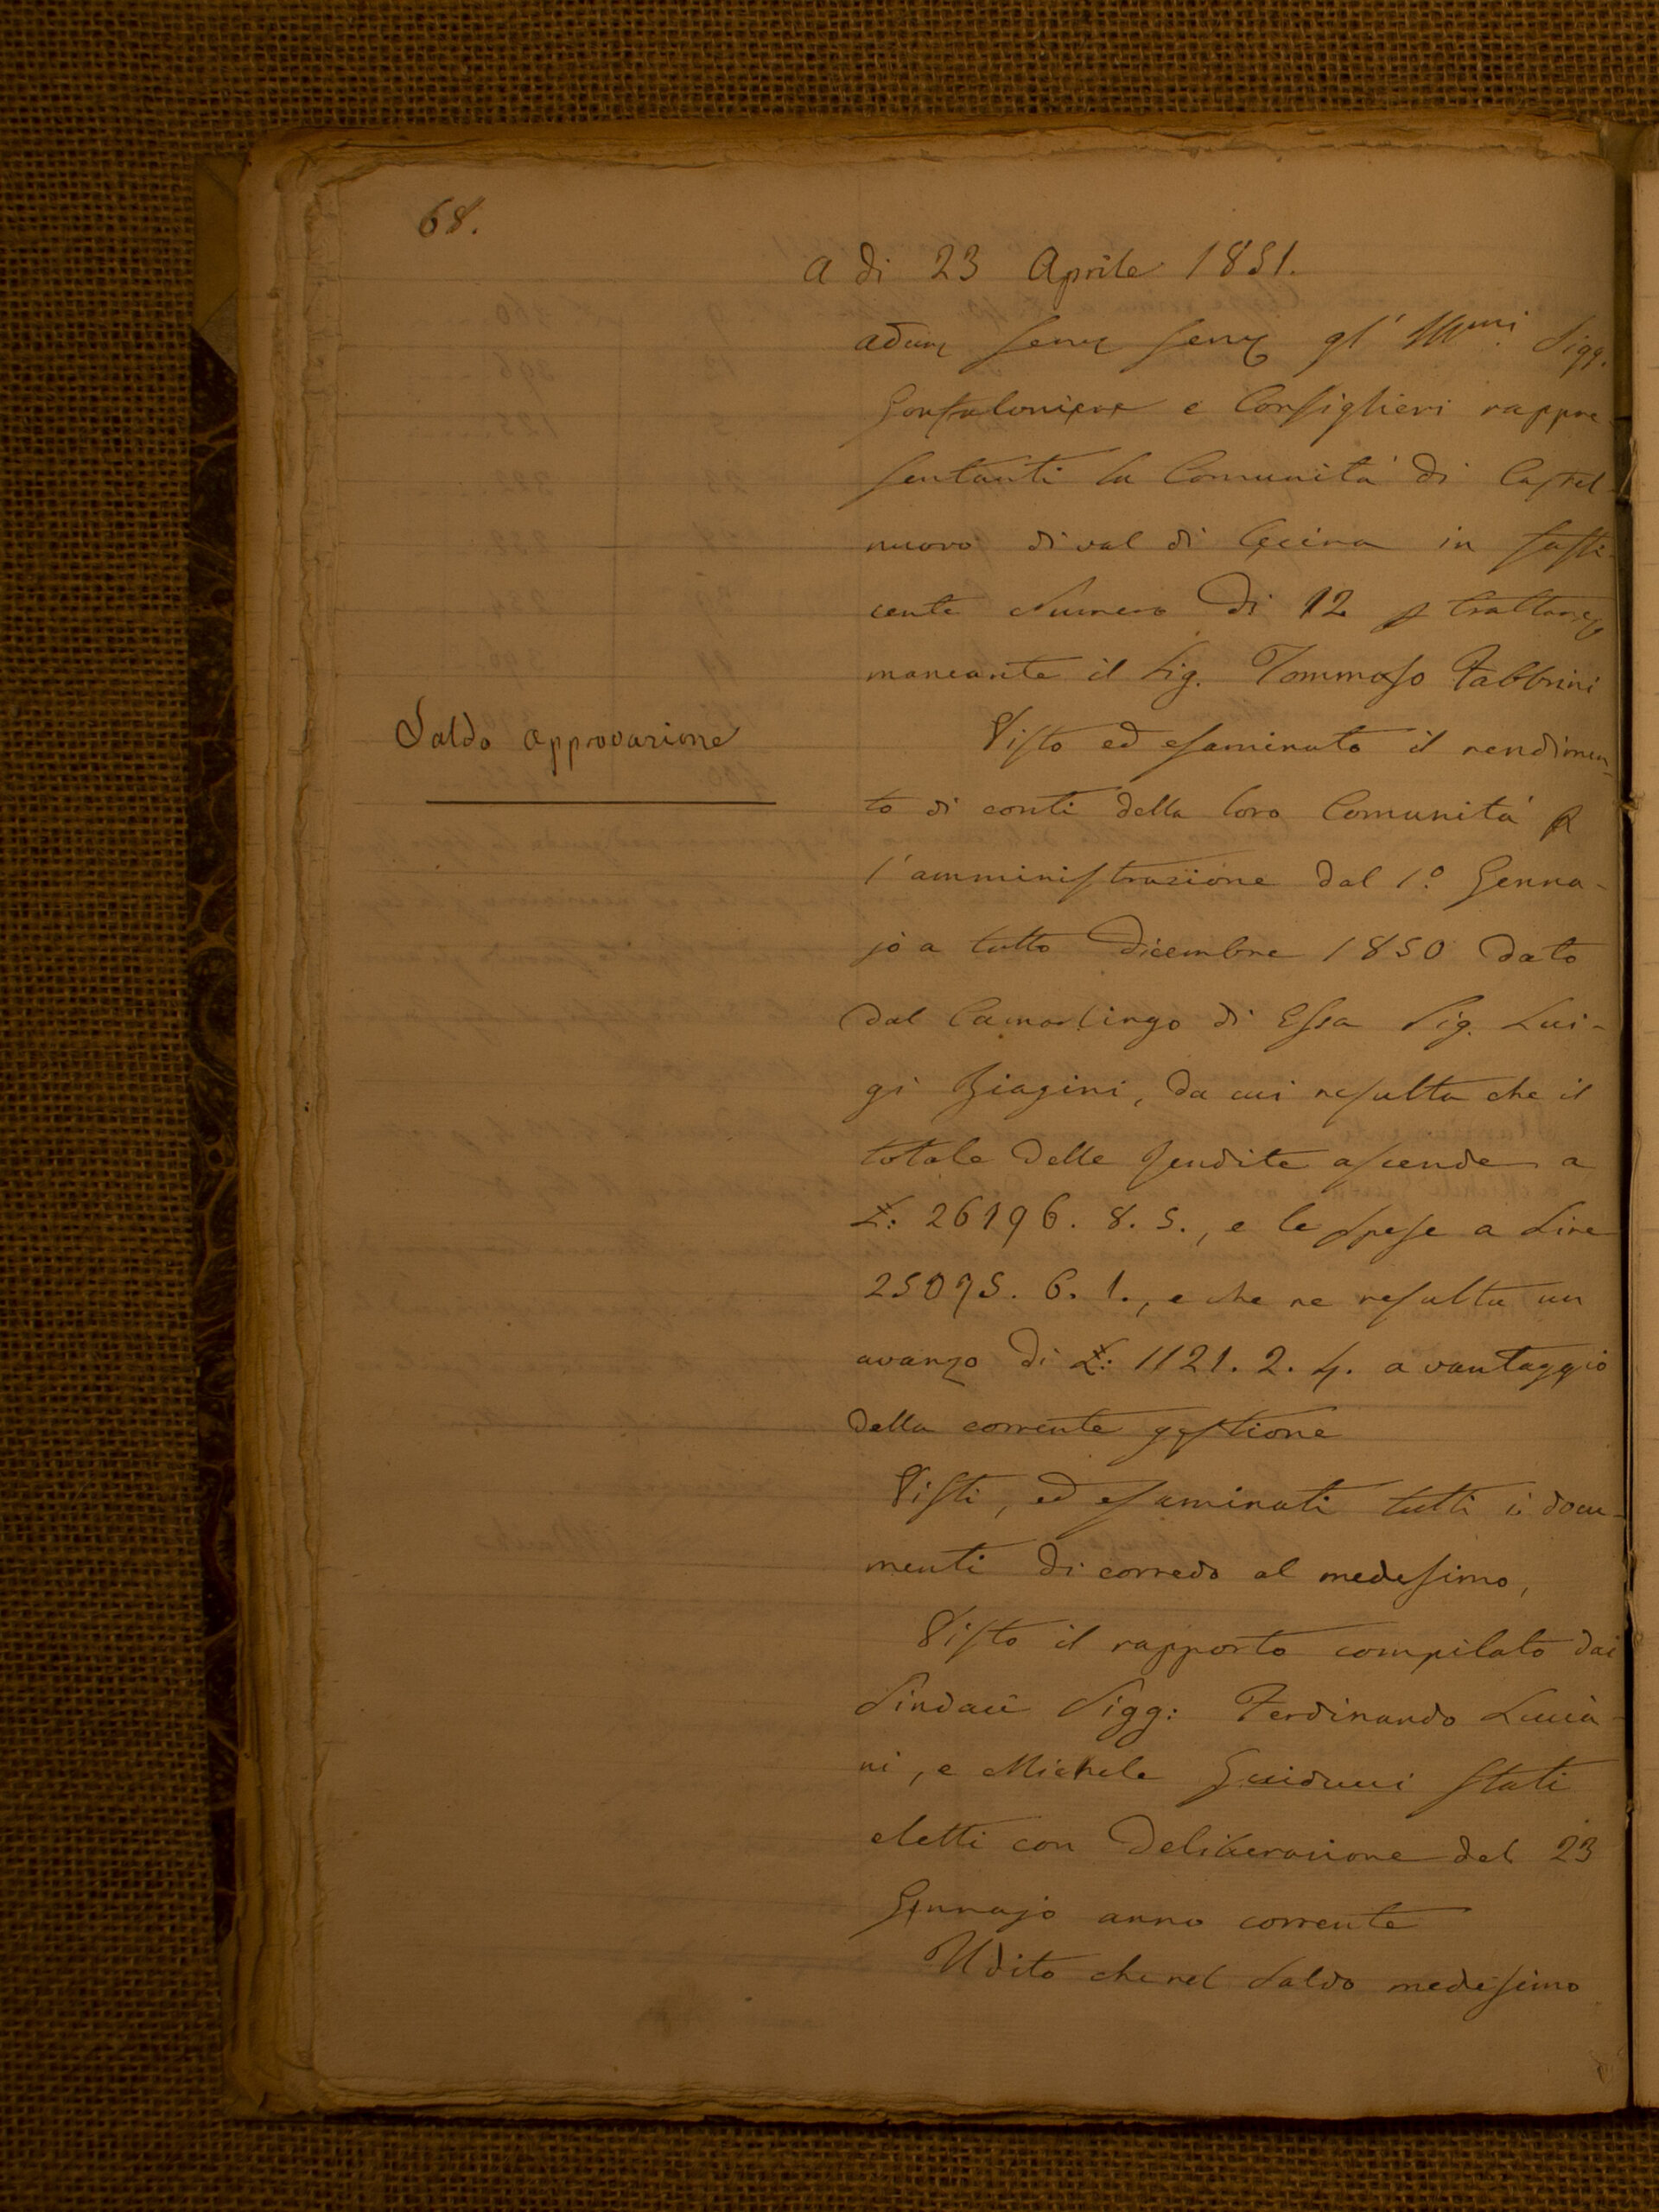 68.
A di 23 Aprile 1851.
Adun. serv. serv. gl' Ill.mi Sigg.
Gonfaloniere e Consiglieri rappre-
sentanti la Comunità di Castel-
nuovo di val di Cecina in suffi-
cente Numero di 12 p trattare
mancante il Sig. Tommaso Fabbrini
Saldo approvazione
Visto ed esaminato il rendimen-
to di conti della loro Comunità p
l'amministrazione dal 1.º Genna-
jo a tutto Dicembre 1850 dato
dal Camarlingo di Essa Sig. Lui-
gi Biagini, da cui resulta che il
totale delle Rendite ascende a
£: 26196. 8. 5., e le spese a Lire
25075. 6. 1., e che ne resulta un
avanzo di £: 1121. 2. 4. a vantaggio
della corrente gestione
Visti, ed esaminati tutti i docu-
menti di corredo al medesimo,
Visto il rapporto compilato dai
Sindaci Sigg: Ferdinando Lucia-
ni, e Michele Guiducci stati
eletti con Deliberazione del 23
Gennajo anno corrente
Udito che nel Saldo medesimo